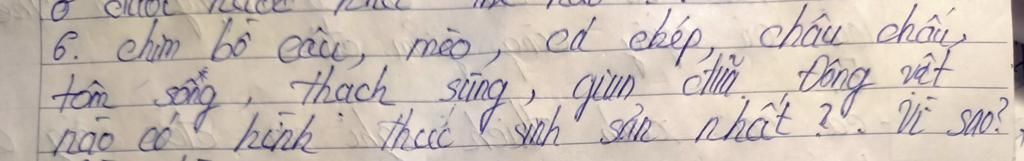 6. chim bồ câu, mèo, cá chép, châu chấu,
tôm sông, thạch sùng, giun đũa. Động vật
nào có hình thức sinh sản nhất? Vì sao?